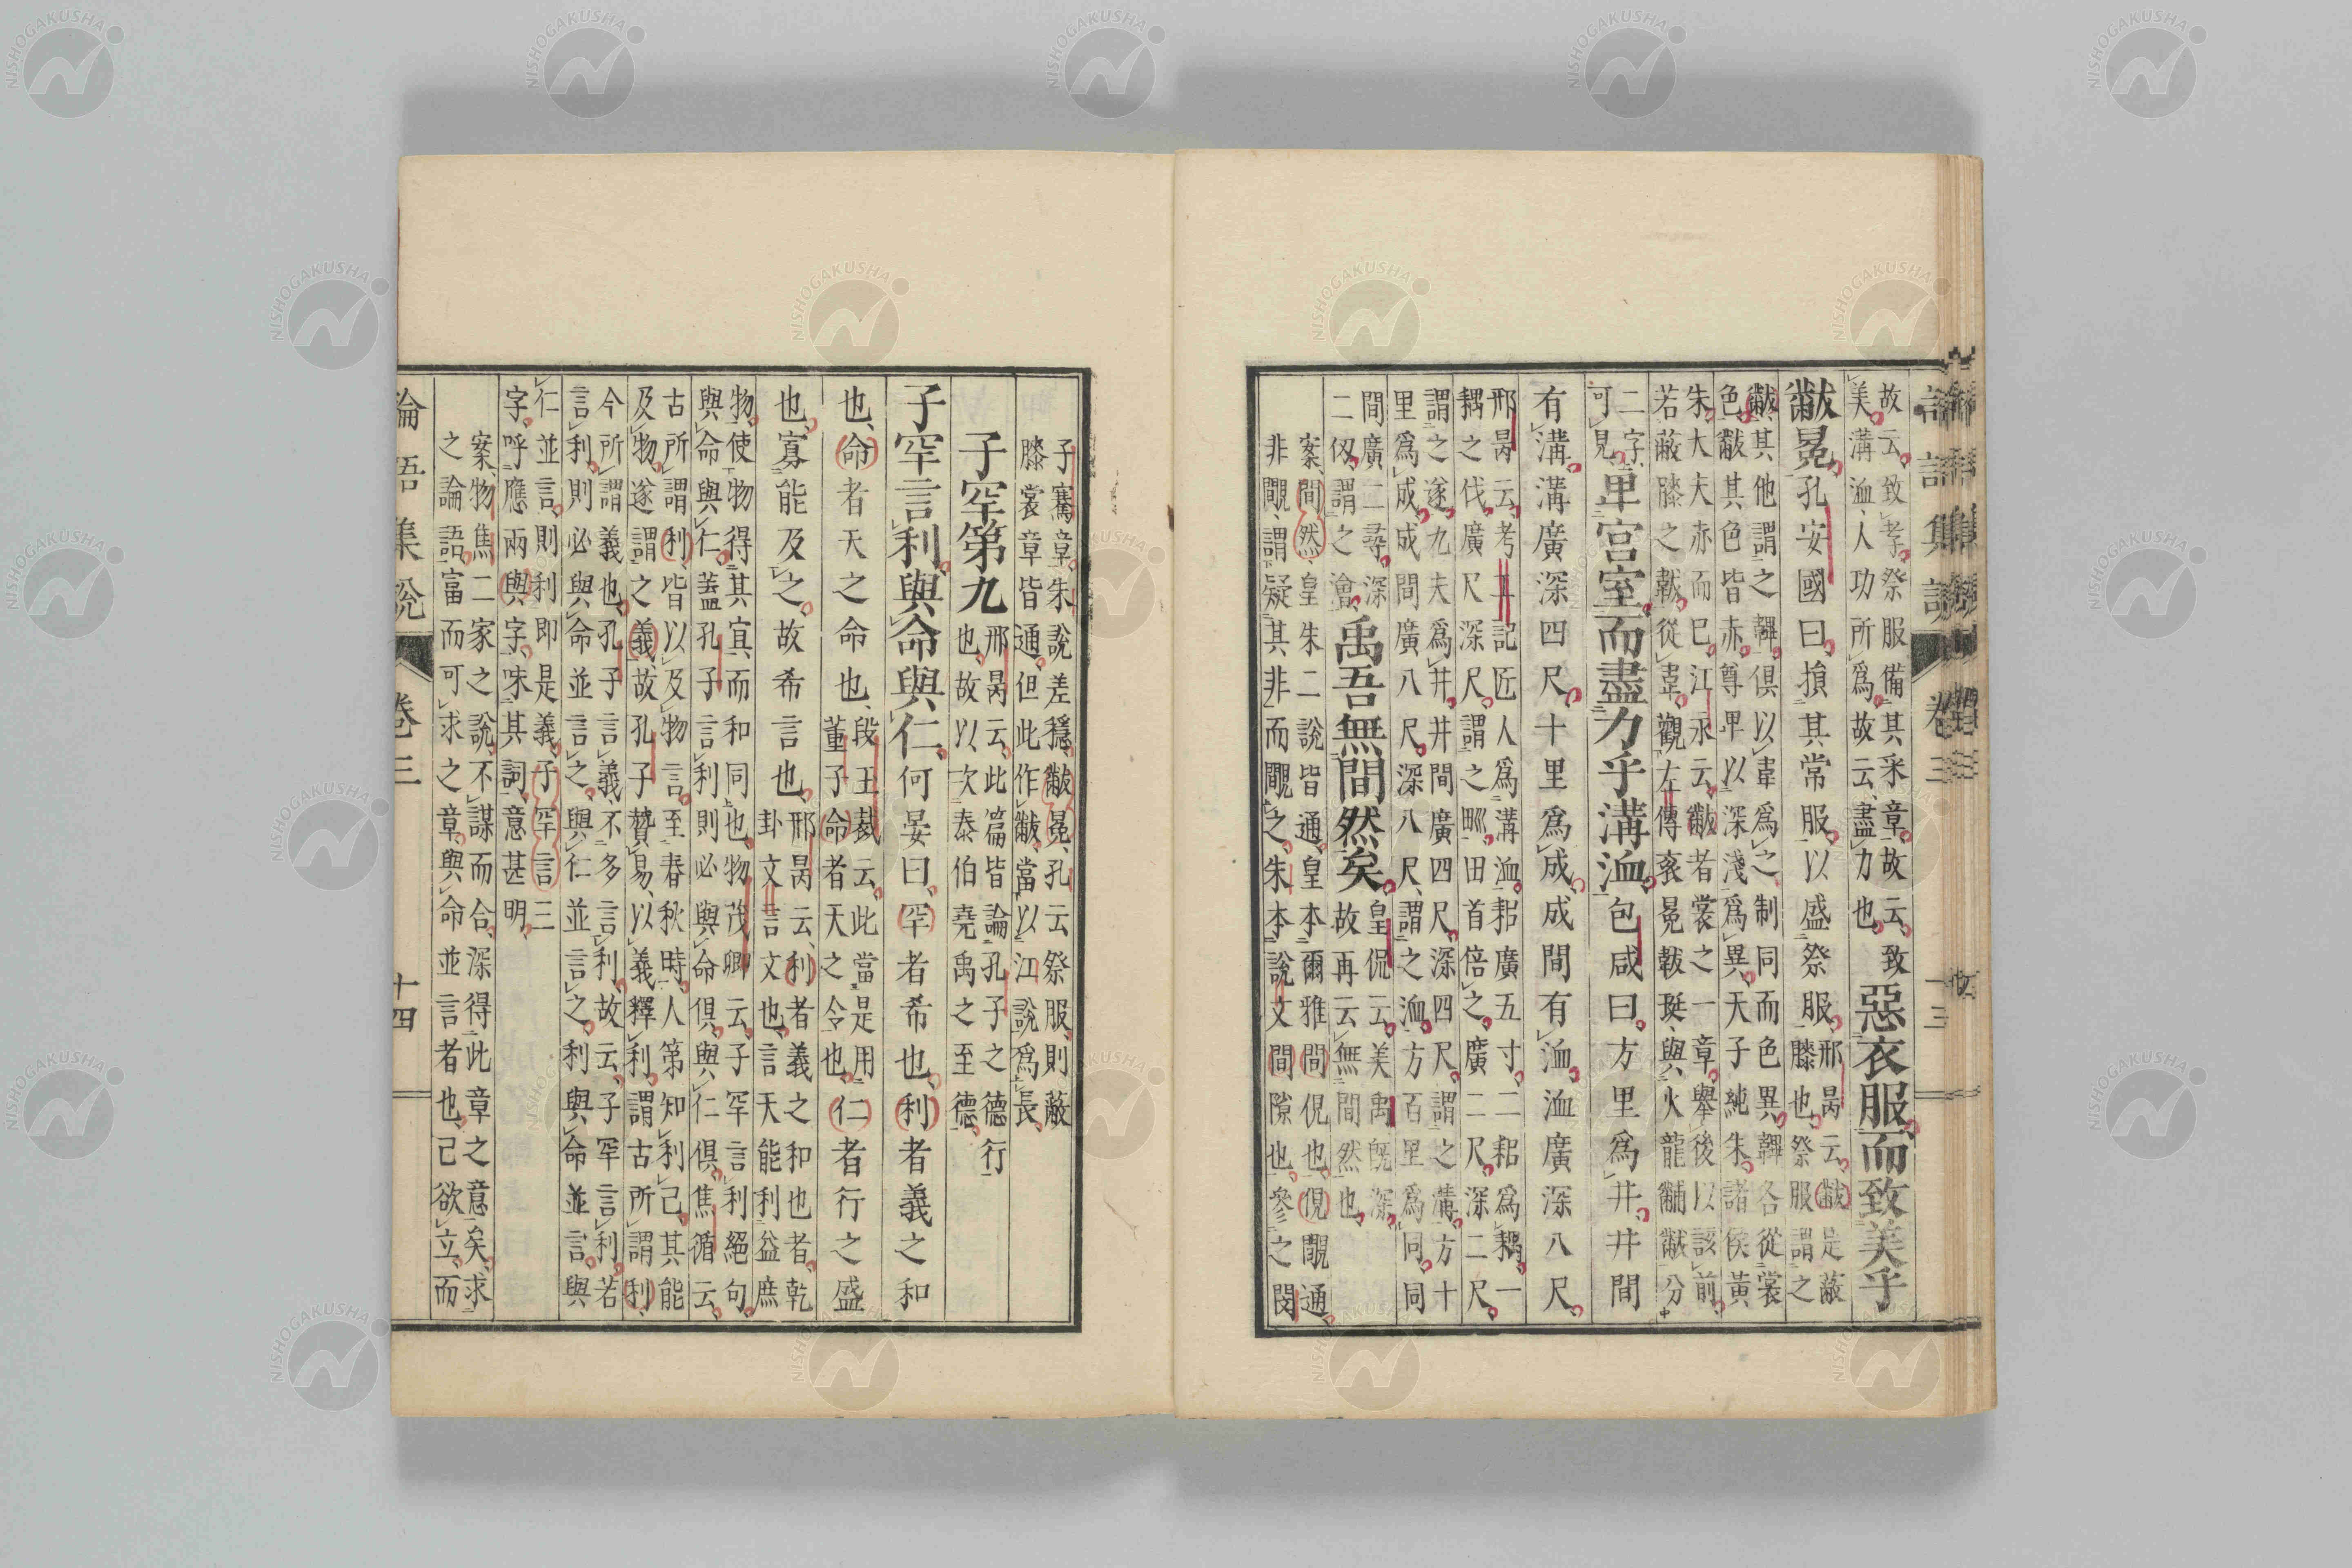 故云、致孝祭服備其采章、故云、致
美、溝洫、人功所爲、故云、盡力也、惡衣服而致美乎
黻冕、孔安國曰、損其常服、以盛祭服、邢昺云、黻是蔽
膝也、祭服謂之
黻、其他謂之韠、俱以韋爲之、制同而色異、韠各從裳
色、黻其色皆赤、尊卑以深淺爲異、天子純朱、諸侯黃
朱、大夫赤而已、江永云、黻者裳之一章、舉後以該前、
若蔽膝之韍、從韋、觀左傳袞冕韍珽、與火龍黼黻分
二字、可見、卑宮室、而盡力乎溝洫、包咸曰、方里爲井、井間
有溝、溝廣深四尺、十里爲成、成間有洫、洫廣深八尺、
邢昺云、考工記匠人爲溝洫、耜廣五寸、二耜爲耦、一
耦之伐、廣尺深尺、謂之畎、田首倍之、廣二尺、深二尺、
謂之遂、九夫爲井、井間廣四尺、深四尺、謂之溝、方十
里爲成、成間廣八尺、深八尺、謂之洫、方百里爲同、同
間廣二尋、深
二仭、謂之澮、禹吾無間然矣、皇侃云、美禹既深、
故再云無間然也、
案、間然、皇朱二說皆通、皇本爾雅間俔也、俔覵通、
非覵謂疑其非而覵之、朱本說文間隙也、參之閔
子騫章、朱說差穩、黻冕、孔云祭服、則蔽
膝裳章皆通、但此作黻、當以江說爲長、
子罕第九 邢昺云、此篇皆論孔子之德行
也、故以次泰伯堯禹之至德、
子罕言利、與命與仁、何晏曰、罕者希也、利者義之和
也、命者天之命也、段玉裁云、此當是用
董子命者天之令也、仁者行之盛
也、寡能及之、故希言也、邢昺云、利者義之和也者、乾
卦文言文也、言天能利益庶
物、使物得其宜、而和同也、物茂卿云、子罕言利絕句、
與命與仁、蓋孔子言利則必與命俱、與仁俱、焦循云、
古所謂利、皆以及物言、至春秋時、人第知利己、其能
及物、遂謂之義、故孔子贊易、以義釋利、謂古所謂利、
今所謂義也、孔子言義、不多言利、故云、子罕言利、若
言利、則必與命並言之、與仁並言之、利與命並言、與
仁並言、則利即是義、子罕言三
字、呼應兩與字、味其詞意甚明、
案、物焦二家之說、不謀而合、深得此章之意矣、求
之論語、富而可求之章、與命並言者也、己欲立、而
論語集說
卷三
十四